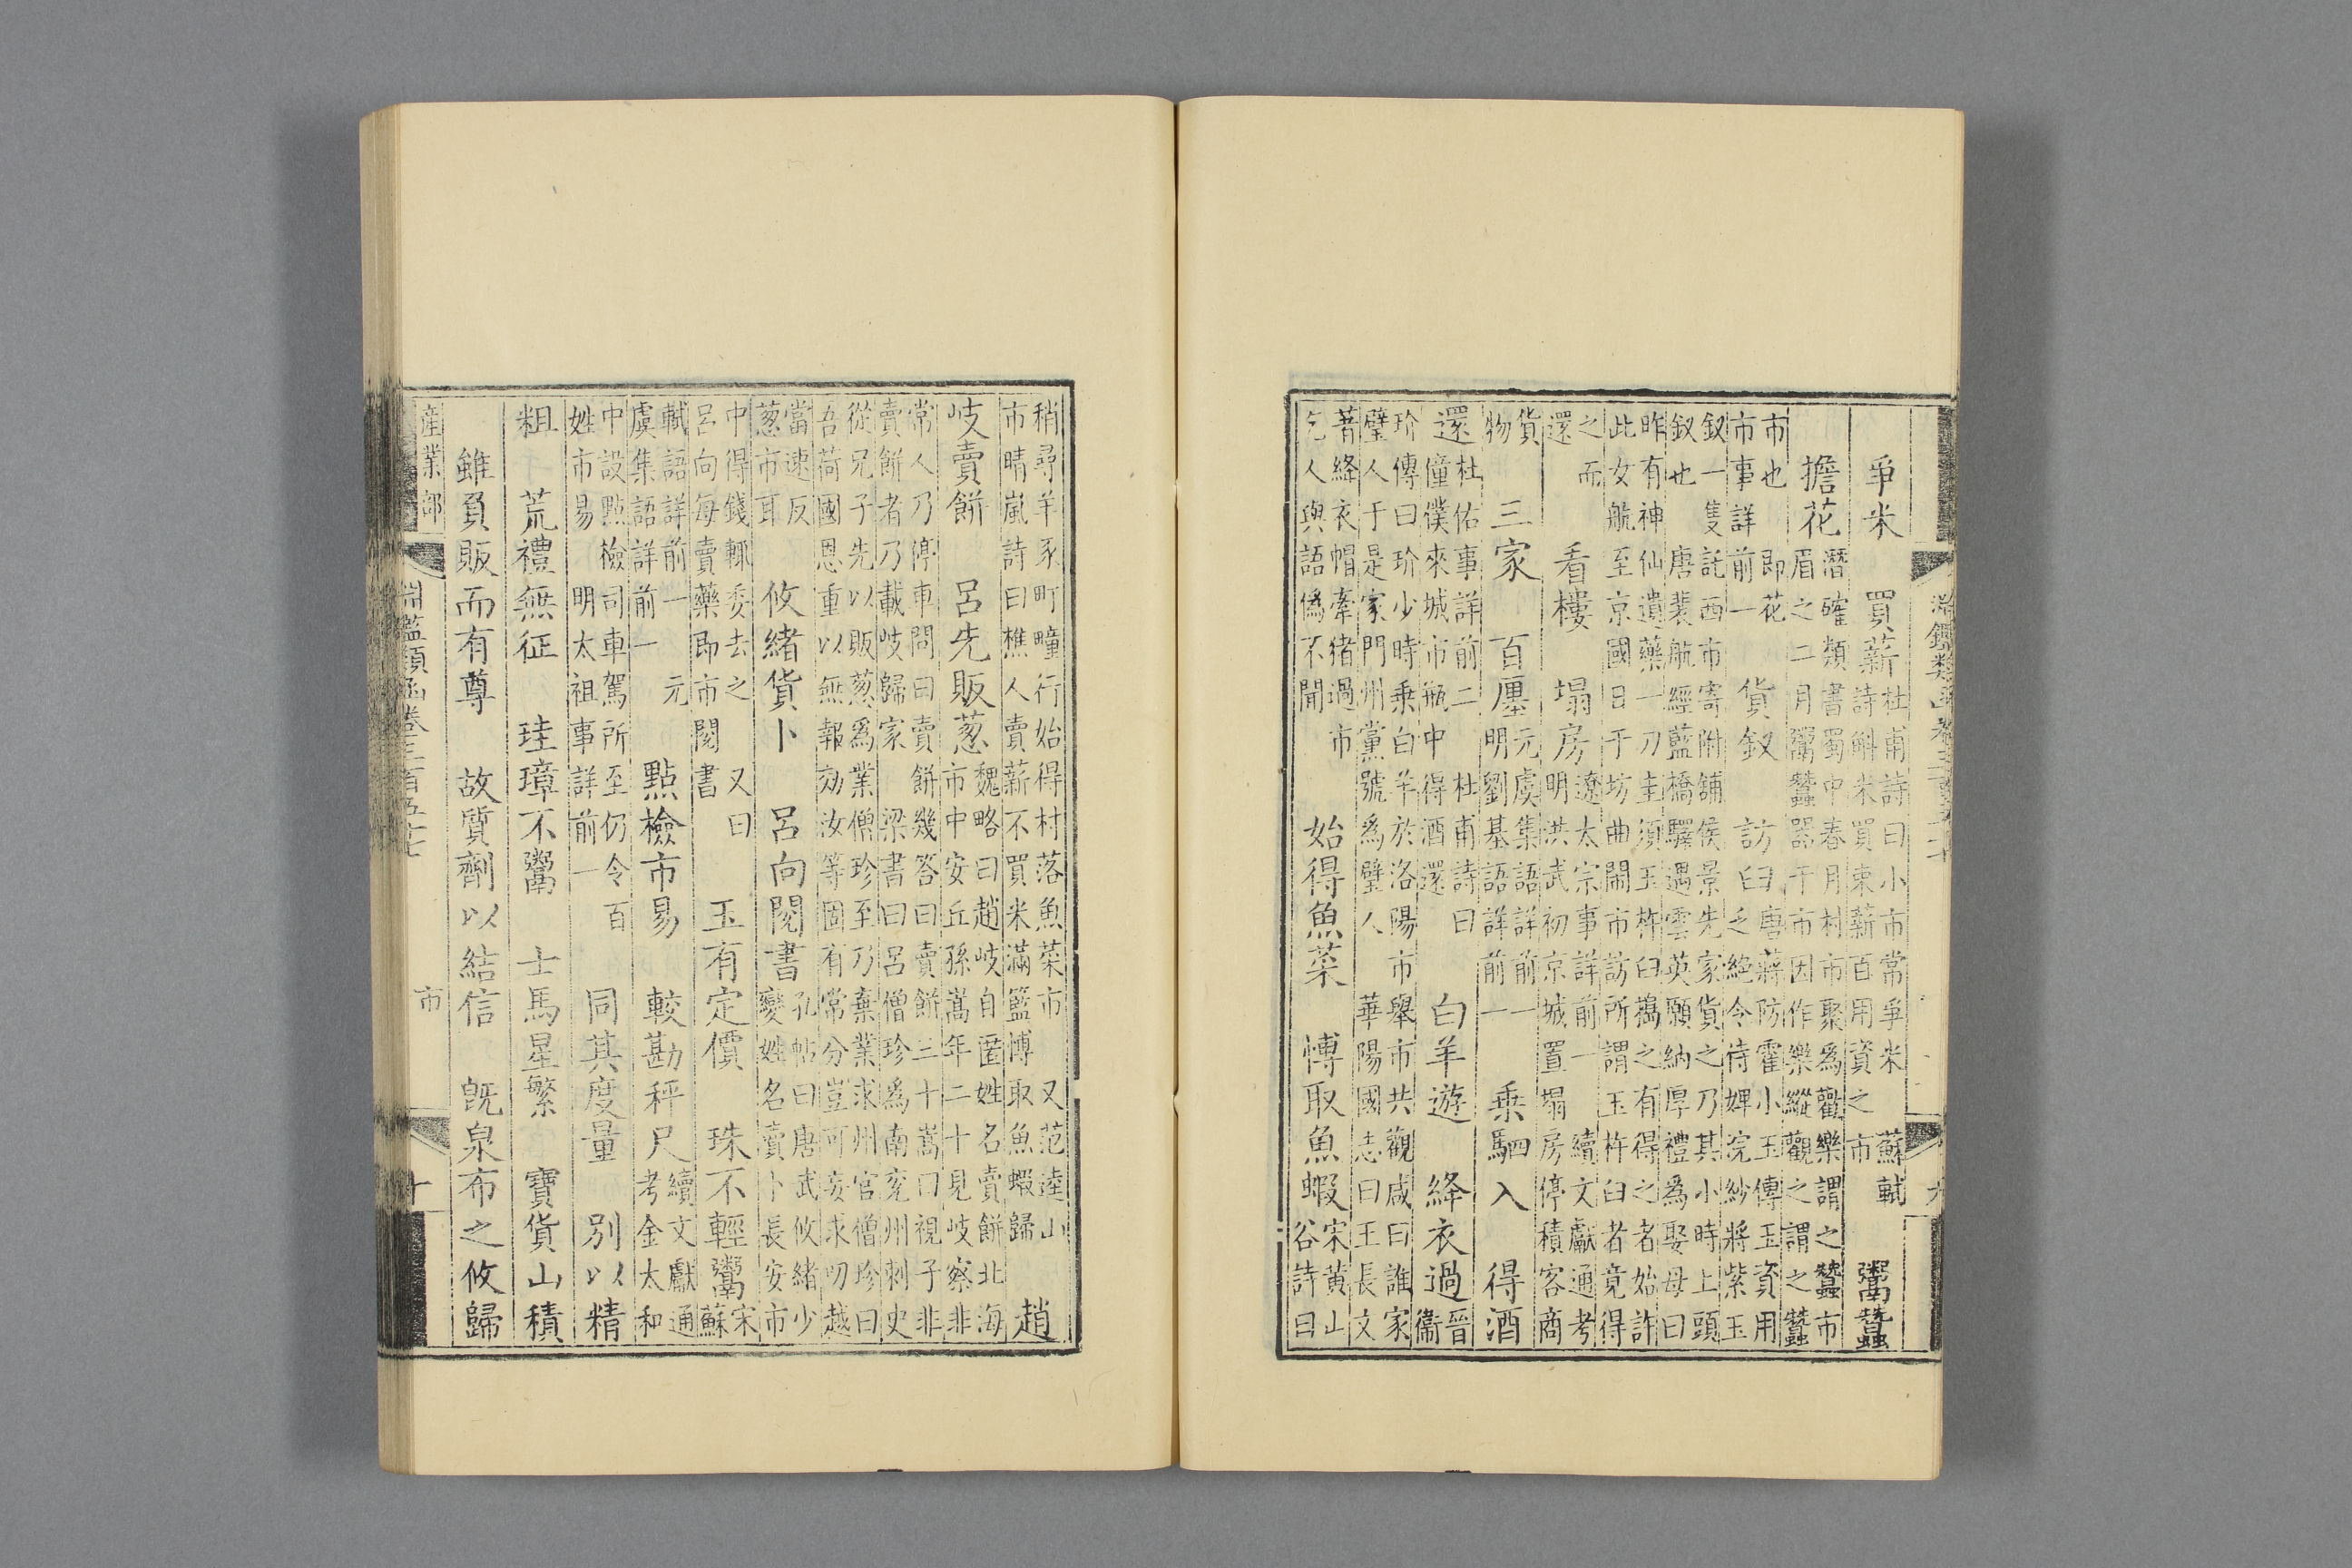 爭米　買薪
杜甫詩曰小市常爭米　蘇軾
詩斛米買束薪百用資之市
鬻蠶
擔花
潛確類書蜀中春月村市聚爲歡樂謂之蠶市
眉之二月鬻蠶器于市因作樂縱觀之謂之蠶
市也　即花
市事詳前一
貨釵　訪臼
唐蔣防霍小玉傳玉資用
乏絕令侍婢浣紗將紫玉
釵一隻託西市寄附鋪侯景先家貨之乃其小時上頭
釵也　唐裴航經藍橋驛遇雲英願納厚禮爲娶母曰
昨有神仙遺藥一刀圭須玉杵臼搗之有得之者始許
此女航至京國日于坊曲鬧市訪所謂玉杵臼者竟得
之而
還
看樓　塌房
遼太宗事詳前一　續文獻通考
明洪武初京城置塌房停積客商
貨
物
三家　百廛
元虞集語詳前一
明劉基語詳前一
乗駟入　得酒
還
杜佑事詳前二　杜甫詩曰
僮僕來城市瓶中得酒還
白羊遊　絳衣過
晉
衞
玠傳曰玠少時乗白羊於洛陽市舉市共觀咸曰誰家
璧人于是家門州黨號爲璧人　華陽國志曰王長文
著絳衣帽牽猪過市
乞人與語偽不聞
始得魚菜　博取魚蝦
宋黃山
谷詩曰
稍尋羊豕町疃行始得村落魚菜市　又范逵山
市晴嵐詩曰樵人賣薪不買米滿籃博取魚蝦歸
趙
岐賣餅　呂先販葱
魏略曰趙岐自匿姓名賣餅北海
市中安丘孫嵩年二十見岐察非
常人乃停車問曰賣餅幾答曰賣餅三十嵩曰視子非
賣餅者乃載岐歸家　梁書曰呂僧珍爲南兗州刺史
從兄子先以販葱爲業僧珍至乃棄業求州官僧珍曰
吾荷國恩重以無報効汝等固有常分豈可妄求叨越
當速反
葱市耳
攸緒貨卜　呂向閱書
孔帖曰唐武攸緒少
變姓名賣卜長安市
中得錢輒委去之　又曰
呂向每賣藥即市閱書
玉有定價　珠不輕鬻
宋
蘇
軾語詳前一　元
虞集語詳前一
點檢市易　較勘秤尺
續文獻通
考金太和
中設點檢司車駕所至仍令百
姓市易　明太祖事詳前一
同其度量　別以精
粗　荒禮無征　珪璋不鬻　士馬星繁　寶貨山積
雖負販而有尊　故質劑以結信　旣泉布之攸歸
產業部　淵鑑類函卷三百五十七　市　十